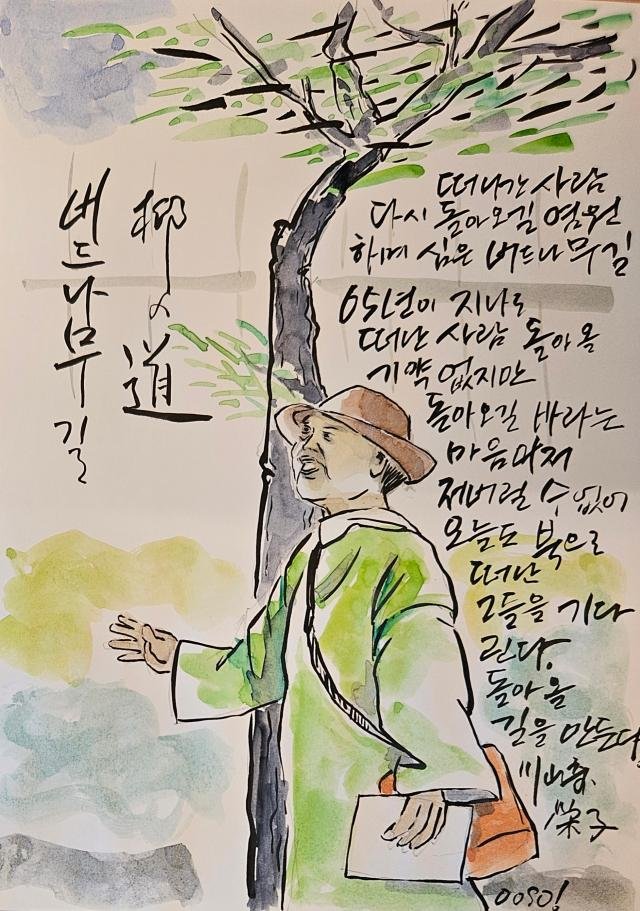 버드나무길
柳の道
떠나간 사람
다시 돌아오길 염원
하며 심은 버드나무길
65년이 지나도
떠난 사람 돌아올
기약 없지만
돌아오길 바라는
마음마저
져버릴 수 없어
오늘도 북으로
떠난
그들을 기다
린다.
돌아올
길을 만든다
川崎
栄子
OOSO!